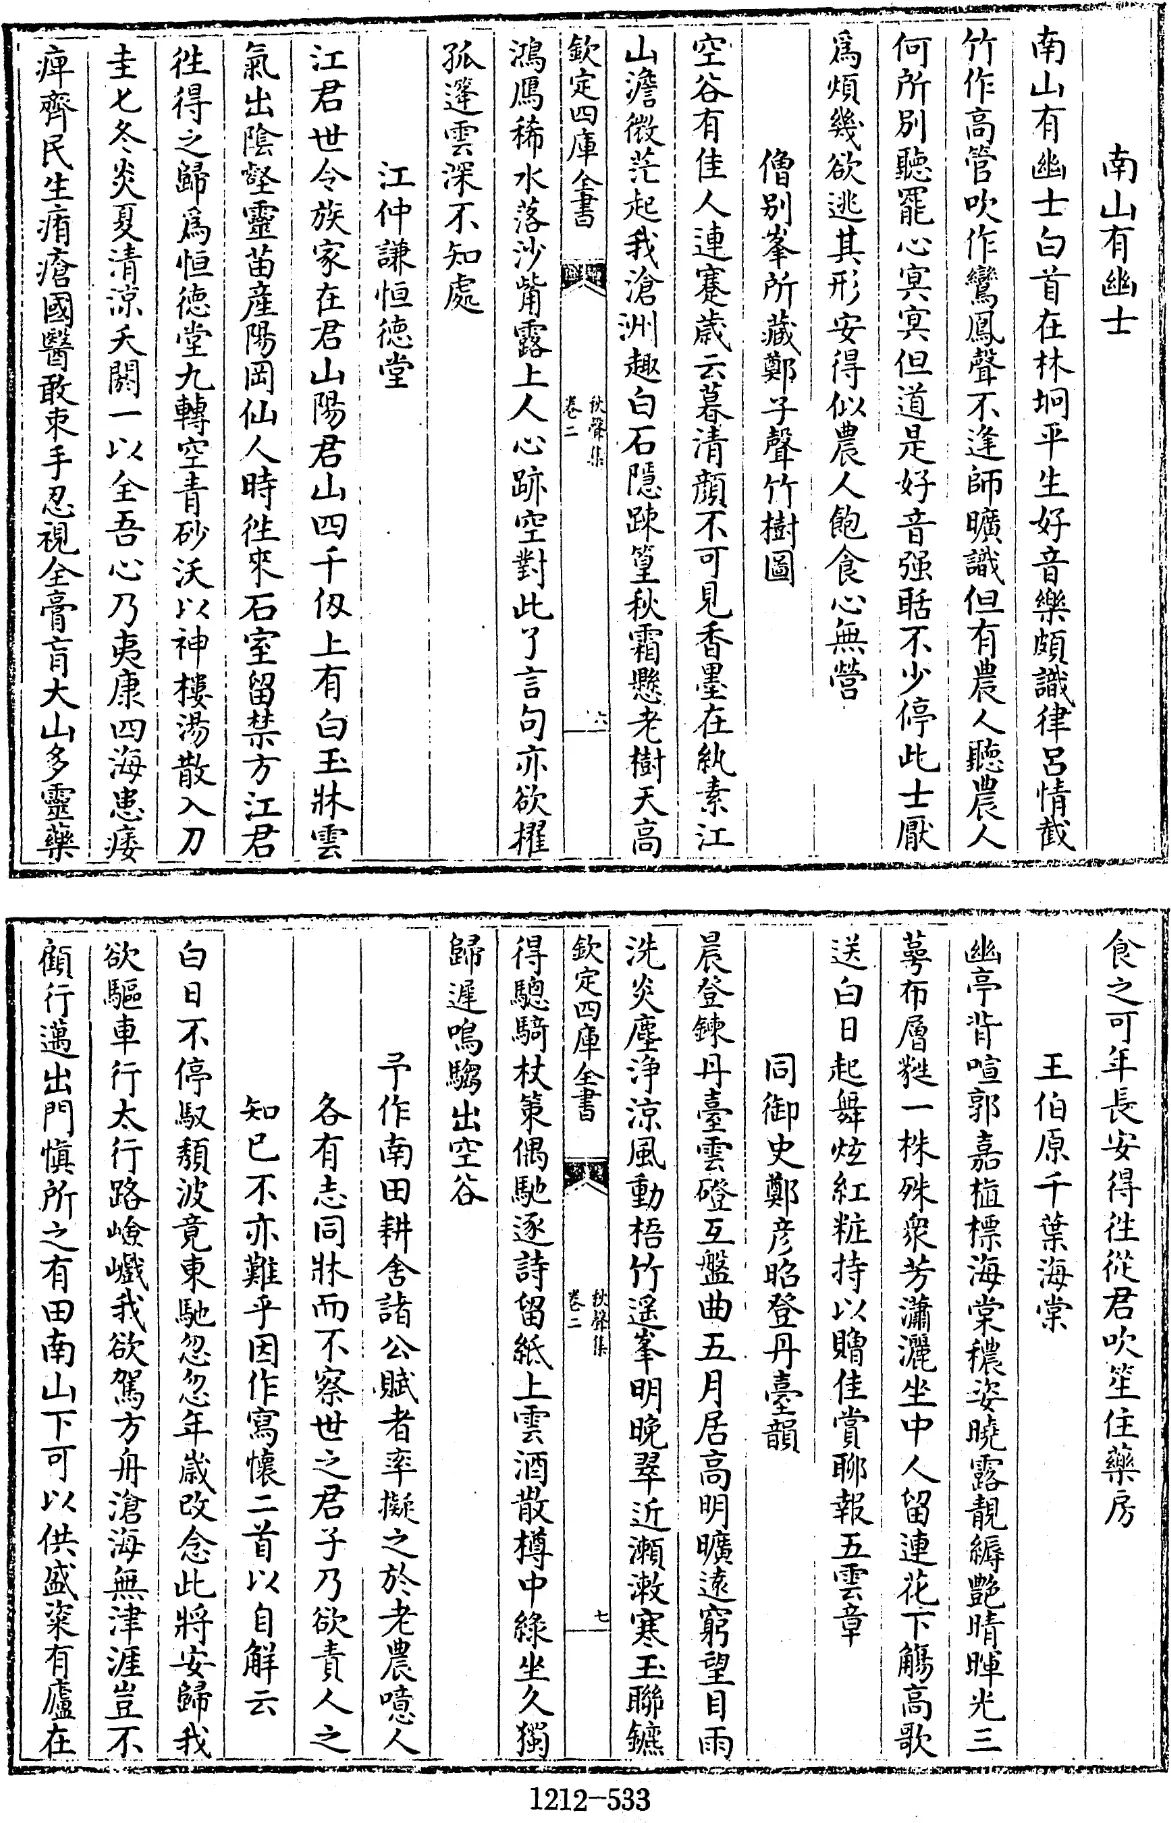 南山有幽士
南山有幽士白首在林坰平生好音樂頗識律呂情截
竹作高管吹作鸞鳳聲不逢師曠識但有農人聽農人
何所別聽罷心冥冥但道是好音强聒不少停此士厭
爲煩幾欲逃其形安得似農人飽食心無營
僧別峯所藏鄭子聲竹樹圖
空谷有佳人連蹇歲云暮清顔不可見香墨在紈素江
山澹微茫起我滄洲趣白石隱踈篁秋霜懸老樹天高
欽定四庫全書
秋聲集
卷二
六
鴻鴈稀水落沙觜露上人心跡空對此了言句亦欲擢
孤篷雲深不知處
江仲謙恒徳堂
江君世令族家在君山陽君山四千仭上有白玉牀雲
氣出陰壑靈苗産陽岡仙人時徃來石室留禁方江君
徃得之歸爲恒徳堂九轉空青砂沃以神樓湯散入刀
圭七冬炎夏清涼夭閼一以全吾心乃夷康四海患痿
痺齊民生痏瘡國醫敢束手忍視全膏肓大山多靈藥
食之可年長安得徃從君吹笙住藥房
王伯原千葉海棠
幽亭背喧郭嘉植標海棠穠姿曉露靚縟艶晴暉光三
蕚布層甤一株殊衆芳瀟灑坐中人留連花下觴高歌
送白日起舞炫紅粧持以贈佳賞聊報五雲章
同御史鄭彦昭登丹臺韻
晨登鍊丹臺雲磴互盤曲五月居高明曠逺窮望目雨
洗炎塵浄涼風動梧竹遥峯明晩翠近瀬潄寒玉聯鑣
欽定四庫全書
秋聲集
卷二
七
得驄騎杖策偶馳逐詩留紙上雲酒散樽中緑坐久獨
歸遲鳴騶出空谷
予作南田耕舍諸公賦者率擬之於老農噫人
各有志同牀而不察世之君子乃欲責人之
知已不亦難乎因作寫懐二首以自解云
白日不停馭頽波竟東馳忽忽年嵗改念此將安歸我
欲驅車行太行路嶮巇我欲駕方舟滄海無津涯豈不
顧行邁出門愼所之有田南山下可以供盛粢有廬在
1212-533